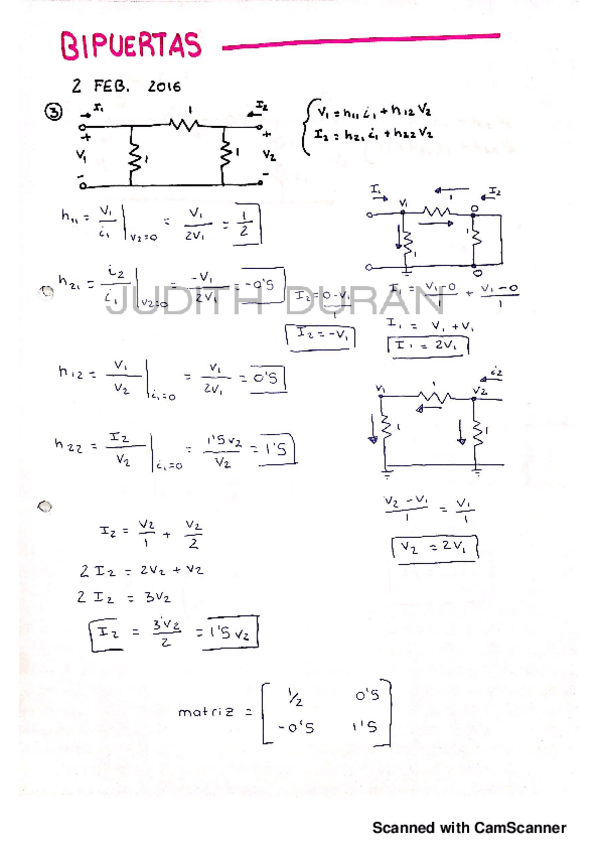 BIPUERTAS
2 FEB. 2016
③
I₁
1
I₂
+
V₁
-
1
1
+
V₂
-
V₁ = h₁₁ i₁ + h₁₂ V₂
I₂ = h₂₁ i₁ + h₂₂ V₂
h₁₁ = V₁/i₁ |V₂=0 = V₁/2V₁ = 1/2
I₁
V₁
1
0
I₂
1
1
0
h₂₁ = i₂/i₁ |V₂=0 = -V₁/2V₁ = -0'5
I₂ = 0-V₁/1
I₁ = V₁-0/1 + V₁-0/1
JUDITH DURAN
I₂ = -V₁
I₁ = V₁ + V₁
I₁ = 2V₁
h₁₂ = V₁/V₂ |i₁=0 = V₁/2V₁ = 0'5
V₁
1
V₂
i₂
1
1
h₂₂ = I₂/V₂ |i₁=0 = 1'5V₂/V₂ = 1'5
V₂-V₁/1 = V₁/1
V₂ = 2V₁
I₂ = V₂/1 + V₂/2
2 I₂ = 2V₂ + V₂
2 I₂ = 3V₂
I₂ = 3V₂/2 = 1'5 V₂
matriz = [ 1/2 0'5
-0'5 1'5 ]
Scanned with CamScanner